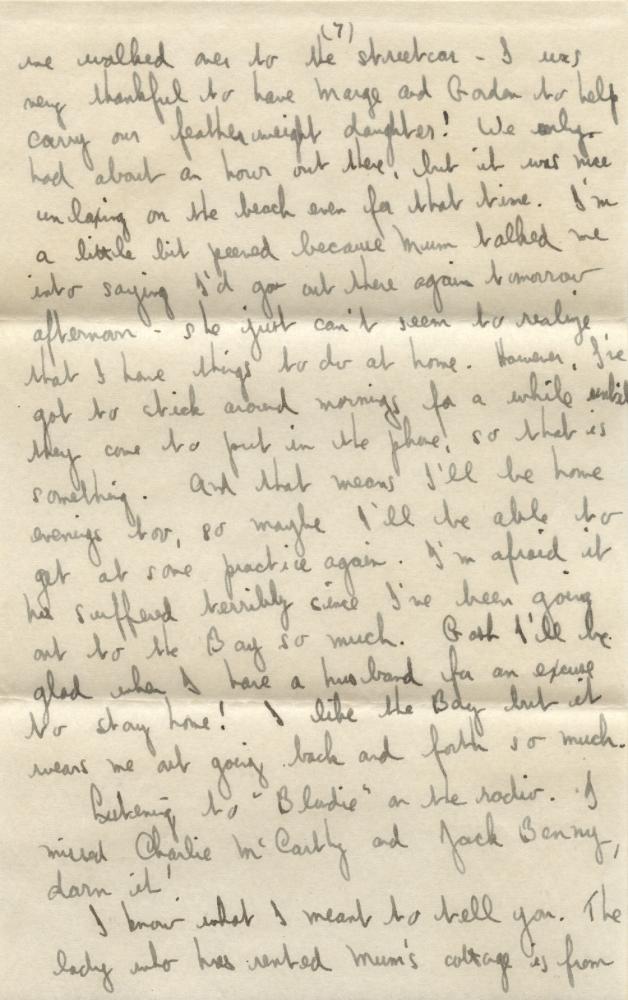 (7)
we walked over to the streetcar - I was
very thankful to have Marge and Gordon to help
carry our featherweight daughter! We only
had about an hour out there, but it was nice
unlaxing on the beach even for that time. I'm
a little bit peeved because Mum talked me
into saying I'd go out there again tomorrow
afternoon - she just can't seem to realize
that I have things to do at home. However, I've
got to stick around mornings for a while until
they come to put in the phone, so that is
something. And that means I'll be home
evenings too, so maybe I'll be able to
get at some practice again. I'm afraid it
has suffered terribly since I've been going
out to the Bay so much. Gosh I'll be
glad when I have a husband for an excuse
to stay home! I like the Bay but it
wears me out going back and forth so much.
Listening to "Blondie" on the radio. I
missed Charlie McCarthy and Jack Benny,
darn it!
I know what I meant to tell you. The
lady who has rented Mum's cottage is from